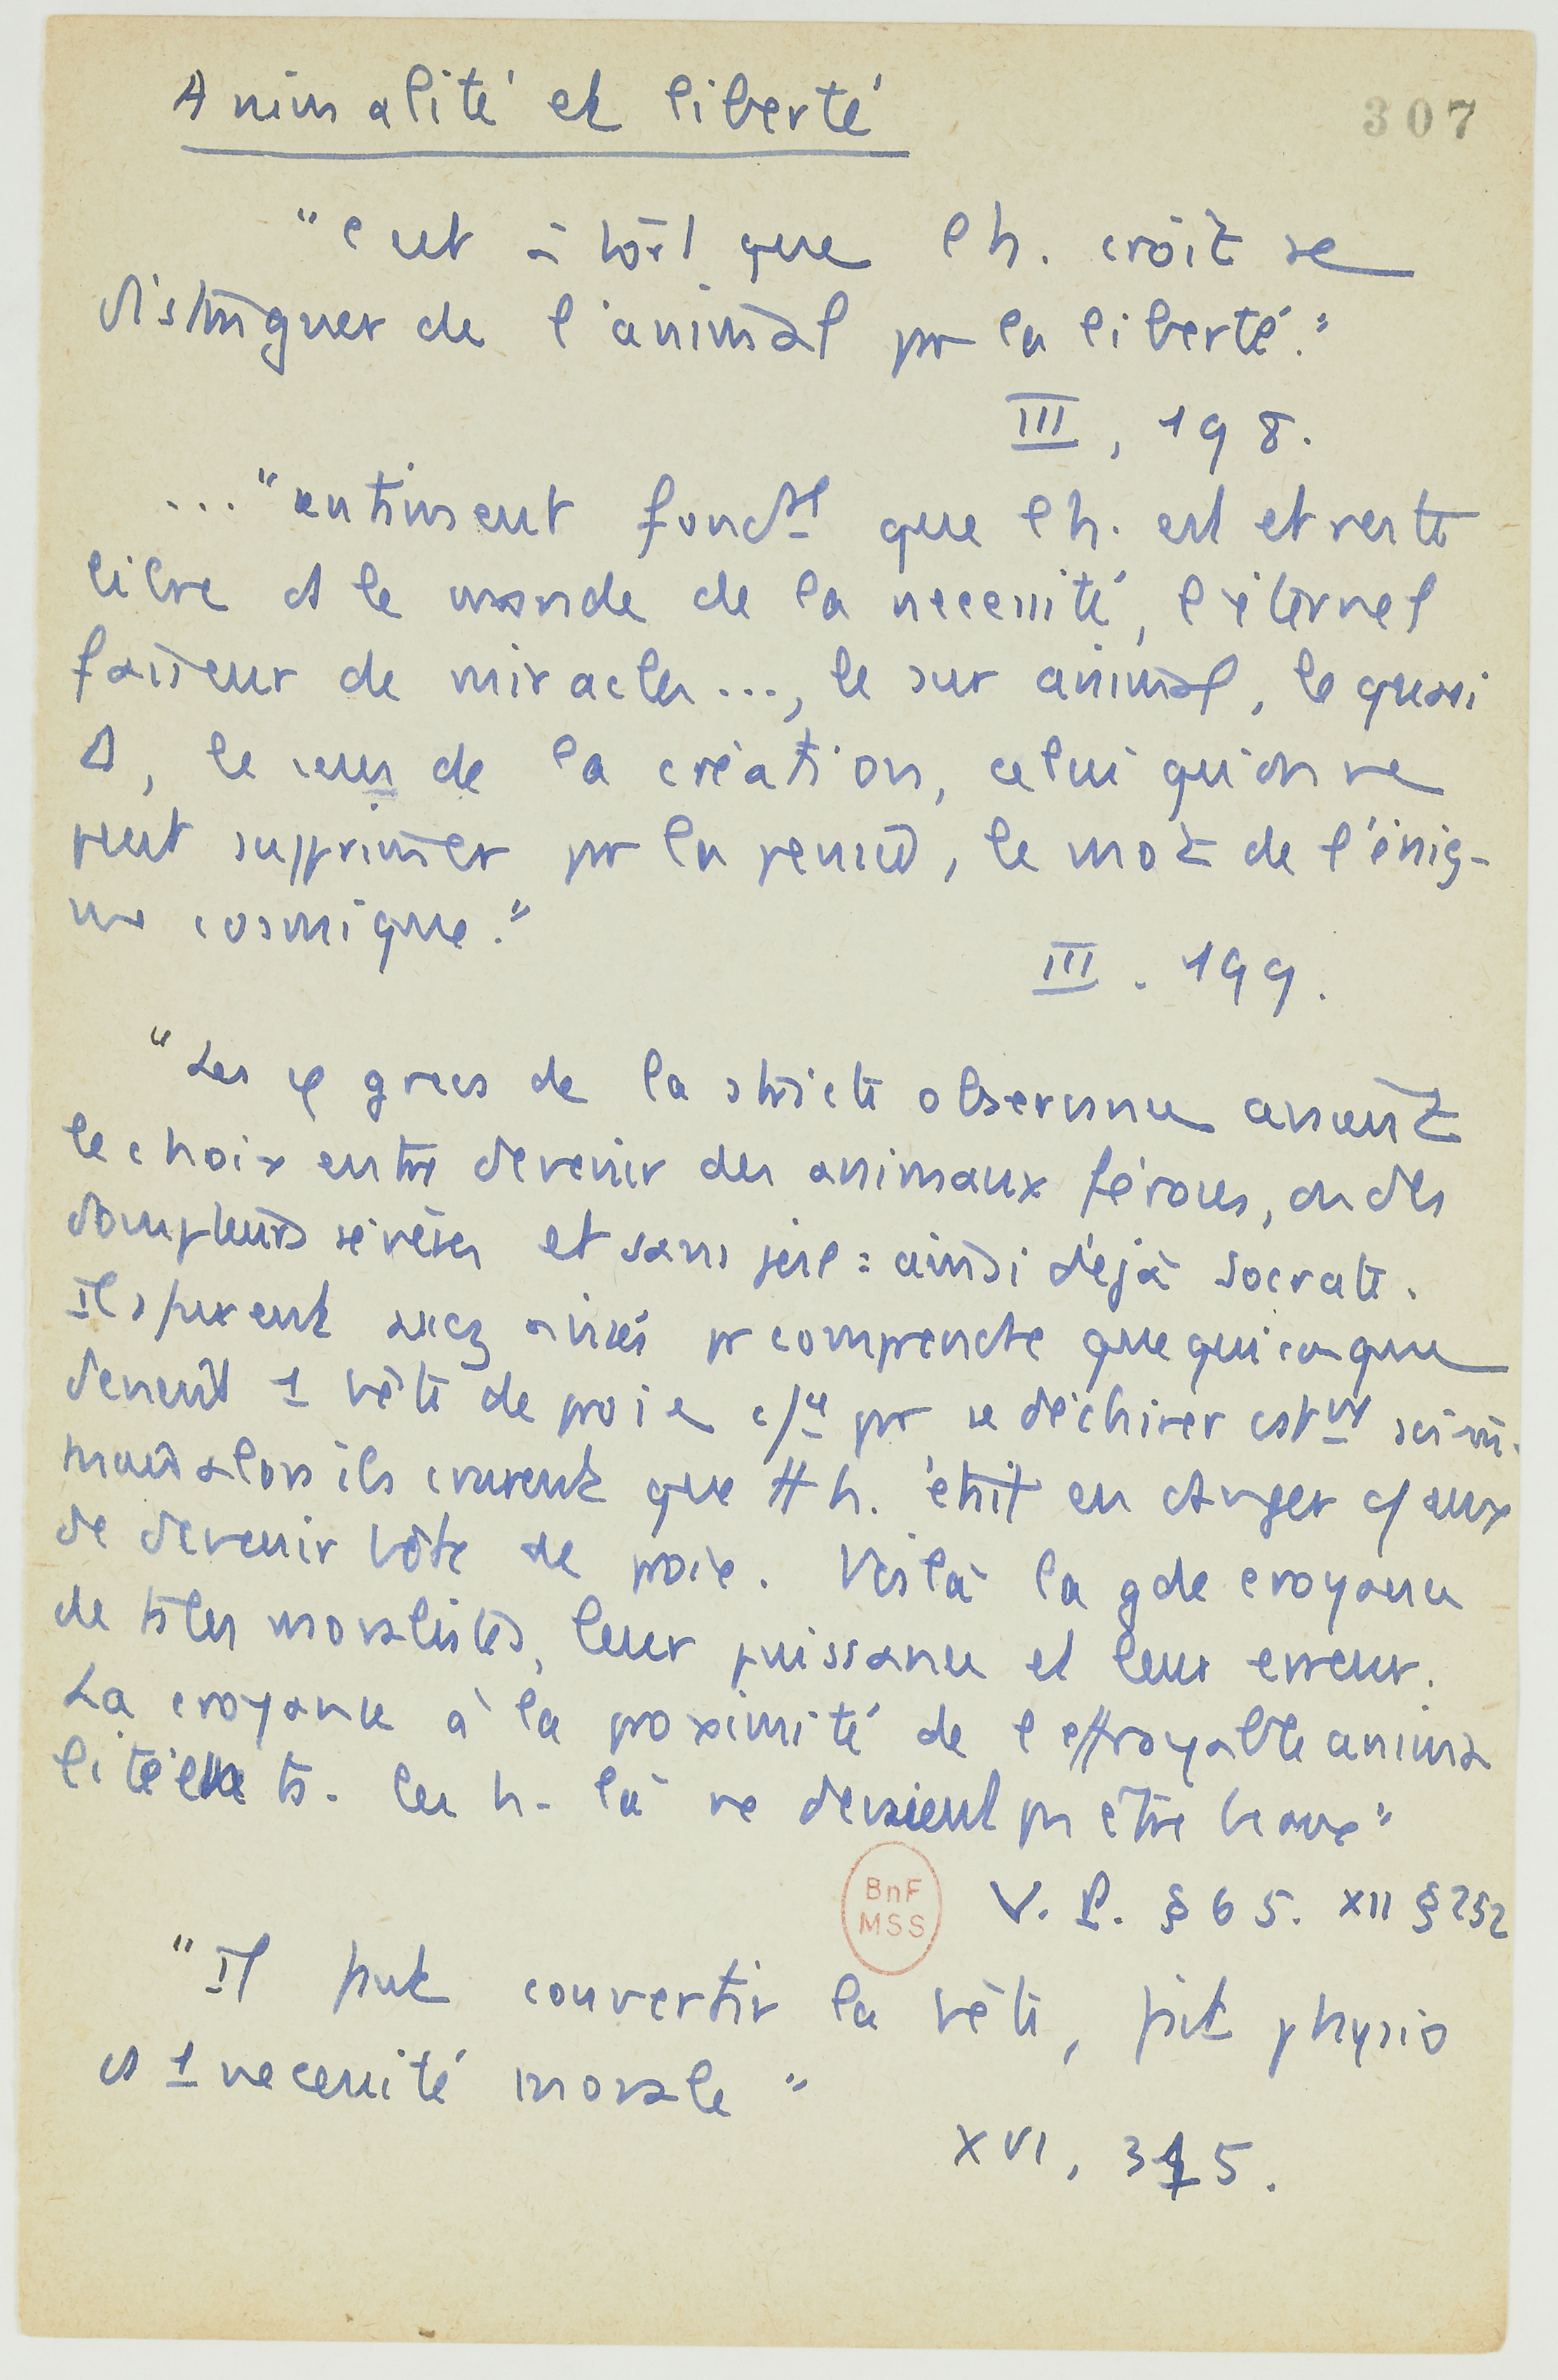 Animalité et liberté
307
"C'est à tort que l'h. croit se
distinguer de l'animal pr la liberté."
III, 198.
... "sentiment fondal que l'h. est et reste
libre ds le monde de la necessité, l'éternel
faiseur de miracles..., le sur animal, le quasi
Δ, le sens de la création, celui qu'on ne
peut supprimer pr la pensée, le mot de l'énig-
me cosmique."
III. 199.
"Les φ grecs de la stricte observance avaient
le choix entre devenir des animaux féroces, ou des
dompteurs sévères et sans joie : ainsi déjà Socrate.
Ils furent assez avisés pr comprendre que quiconque
devenait 1 bête de proie c/ce pr se déchirer
mais alors ils crurent que tt h. était en danger c/ eux
de devenir bête de proie. Voilà la gde croyance
de ts les moralistes, leur puissance et leur erreur.
La croyance à la proximité de l'effroyable anima
lité ts. les h. là ne devaient pas être beaux"
V. P. § 65. XII § 252
BnF
MSS
"Il faut convertir la bête, fait physio
ds 1 necessité morale"
XVI, 315.